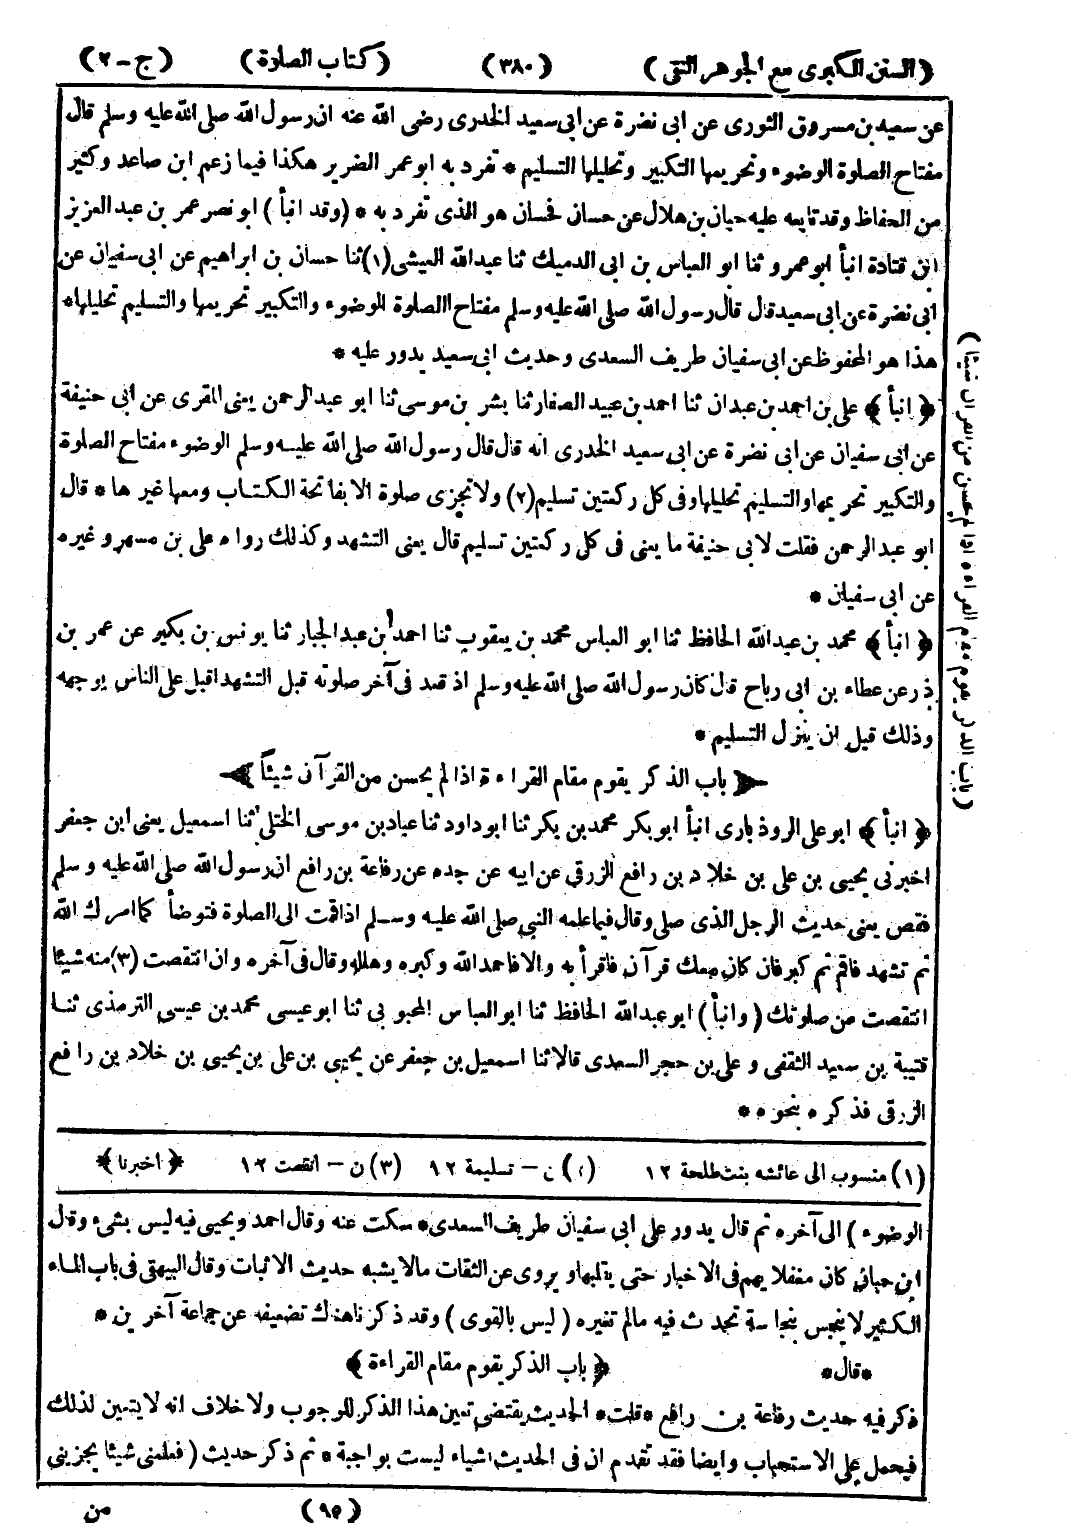 (السنن الكبرى مع الجوهر النقى) (٣٨٠) (كتاب الصلاة) (ج-٢)
عن سعيد بن مسروق الثورى عن ابى نضرة عن ابى سعيد الخدرى رضى الله عنه ان رسول الله صلى الله عليه وسلم قال
مفتاح الصلوة الوضوء وتحريمها التكبير وتحليلها التسليم * تفرد به ابو عمر الضرير هكذا فيما زعم ابن صاعد وكثير
من الحفاظ وقد تابعه عليه حيان بن هلال عن حسان فحسان هو الذى تفرد به * (وقد انبأ) ابو نصر عمر بن عبد العزيز
ابن قتادة انبأ ابو عمرو ثنا ابو العباس بن ابى الدميك ثنا عبد الله العيشى (١) ثنا حسان بن ابراهيم عن ابى سفيان عن
ابى نضرة عن ابى سعيد قال قال رسول الله صلى الله عليه وسلم مفتاح الصلوة الوضوء والتكبير تحريمها والتسليم تحليلها *
هذا هو المحفوظ عن ابى سفيان طريف السعدى وحديث ابى سعيد يدور عليه *
﴿ انبأ ﴾ على بن احمد بن عبدان ثنا احمد بن عبيد الصفار ثنا بشر بن موسى ثنا ابو عبد الرحمن يعنى المقرى عن ابى حنيفة
عن ابى سفيان عن ابى نضرة عن ابى سعيد الخدرى انه قال قال رسول الله صلى الله عليه وسلم الوضوء مفتاح الصلوة
والتكبير تحريمها والتسليم تحليلها وفى كل ركعتين تسليم (٢) ولا تجزى صلوة الا بفاتحة الكتاب ومعها غيرها * قال
ابو عبد الرحمن فقلت لابى حنيفة ما يعنى فى كل ركعتين تسليم قال يعنى التشهد وكذلك رواه على بن مسهر وغيره
عن ابى سفيان *
﴿ انبأ ﴾ محمد بن عبد الله الحافظ ثنا ابو العباس محمد بن يعقوب ثنا احمد بن عبد الجبار ثنا يونس بن بكير عن عمر بن
ذر عن عطاء بن ابى رباح قال كان رسول الله صلى الله عليه وسلم اذ قعد فى آخر صلوته قبل التشهد اقبل على الناس بوجهه
وذلك قبل ان ينزل التسليم *
﴿ باب الذكر يقوم مقام القراءة اذا لم يحسن من القرآن شيئا ﴾
﴿ انبأ ﴾ ابو على الروذبارى انبأ ابو بكر محمد بن بكر ثنا ابو داود ثنا عباد بن موسى الختلى ثنا اسمعيل يعنى ابن جعفر
اخبرنى يحيى بن على بن خلاد بن رافع الزرقى عن ابيه عن جده عن رفاعة بن رافع ان رسول الله صلى الله عليه وسلم
فقص يعنى حديث الرجل الذى صلى وقال فيما علمه النبى صلى الله عليه وسلم اذا قمت الى الصلوة فتوضأ كما امرك الله
ثم تشهد فاقم ثم كبر فان كان معك قرآن فاقرأ به والا فاحمد الله وكبره وهلله وقال فى آخره وان انتقصت (٣) منه شيئا
انتقصت من صلوتك (وانبأ) ابو عبد الله الحافظ ثنا ابو العباس المحبوبى ثنا ابو عيسى محمد بن عيسى الترمذى ثنا
قتيبة بن سعيد الثقفى وعلى بن حجر السعدى قالا ثنا اسمعيل بن جعفر عن يحيى بن على بن يحيى بن خلاد بن رافع
الزرقى فذكره بنحوه *
(١) منسوب الى عائشه بنت طلحة ١٢ (٢) ن - تسليمة ١٢ (٣) ن - انقصت ١٢ ﴿ أخبرنا ﴾
الوضوء) الى آخره ثم قال يدور على ابى سفيان طريف السعدى * سكت عنه وقال احمد ويحيى فيه ليس بشىء وقال
ابن حبان كان مغفلا يهم فى الاخبار حتى يقلبها ويروى عن الثقات مالا يشبه حديث الاثبات وقال البيهقى فى باب الماء
الكثير لا ينجس بنجاسة تحدث فيه مالم تغيره (ليس بالقوى) وقد ذكرنا هناك تضعيفه عن جماعة آخرين *
*قال* ﴿ باب الذكر يقوم مقام القراءة ﴾
ذكر فيه حديث رفاعة بن رافع *قلت* الحديث يقتضى تعين هذا الذكر للوجوب ولا خلاف انه لا يتعين لذلك
فيحمل على الاستحباب وايضا فقد تقدم ان فى الحديث اشياء ليست بواجبة * ثم ذكر حديث (فعلمنى شيئا يجزينى
(٩٥) من
(باب الذكر يقوم مقام القراءة اذا لم يحسن من القرآن شيئا)